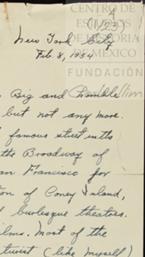 CENTRO DE
ESTUDIOS
DE HISTORIA
DE MÉXICO
FUNDACIÓN
New York City
Feb. 8, 1934
Big and
but not any more.
famous street with
the Broadway of
an Francisco for
on of Coney Island,
burlesque theaters.
lms. Most of the
tourist (like myself)